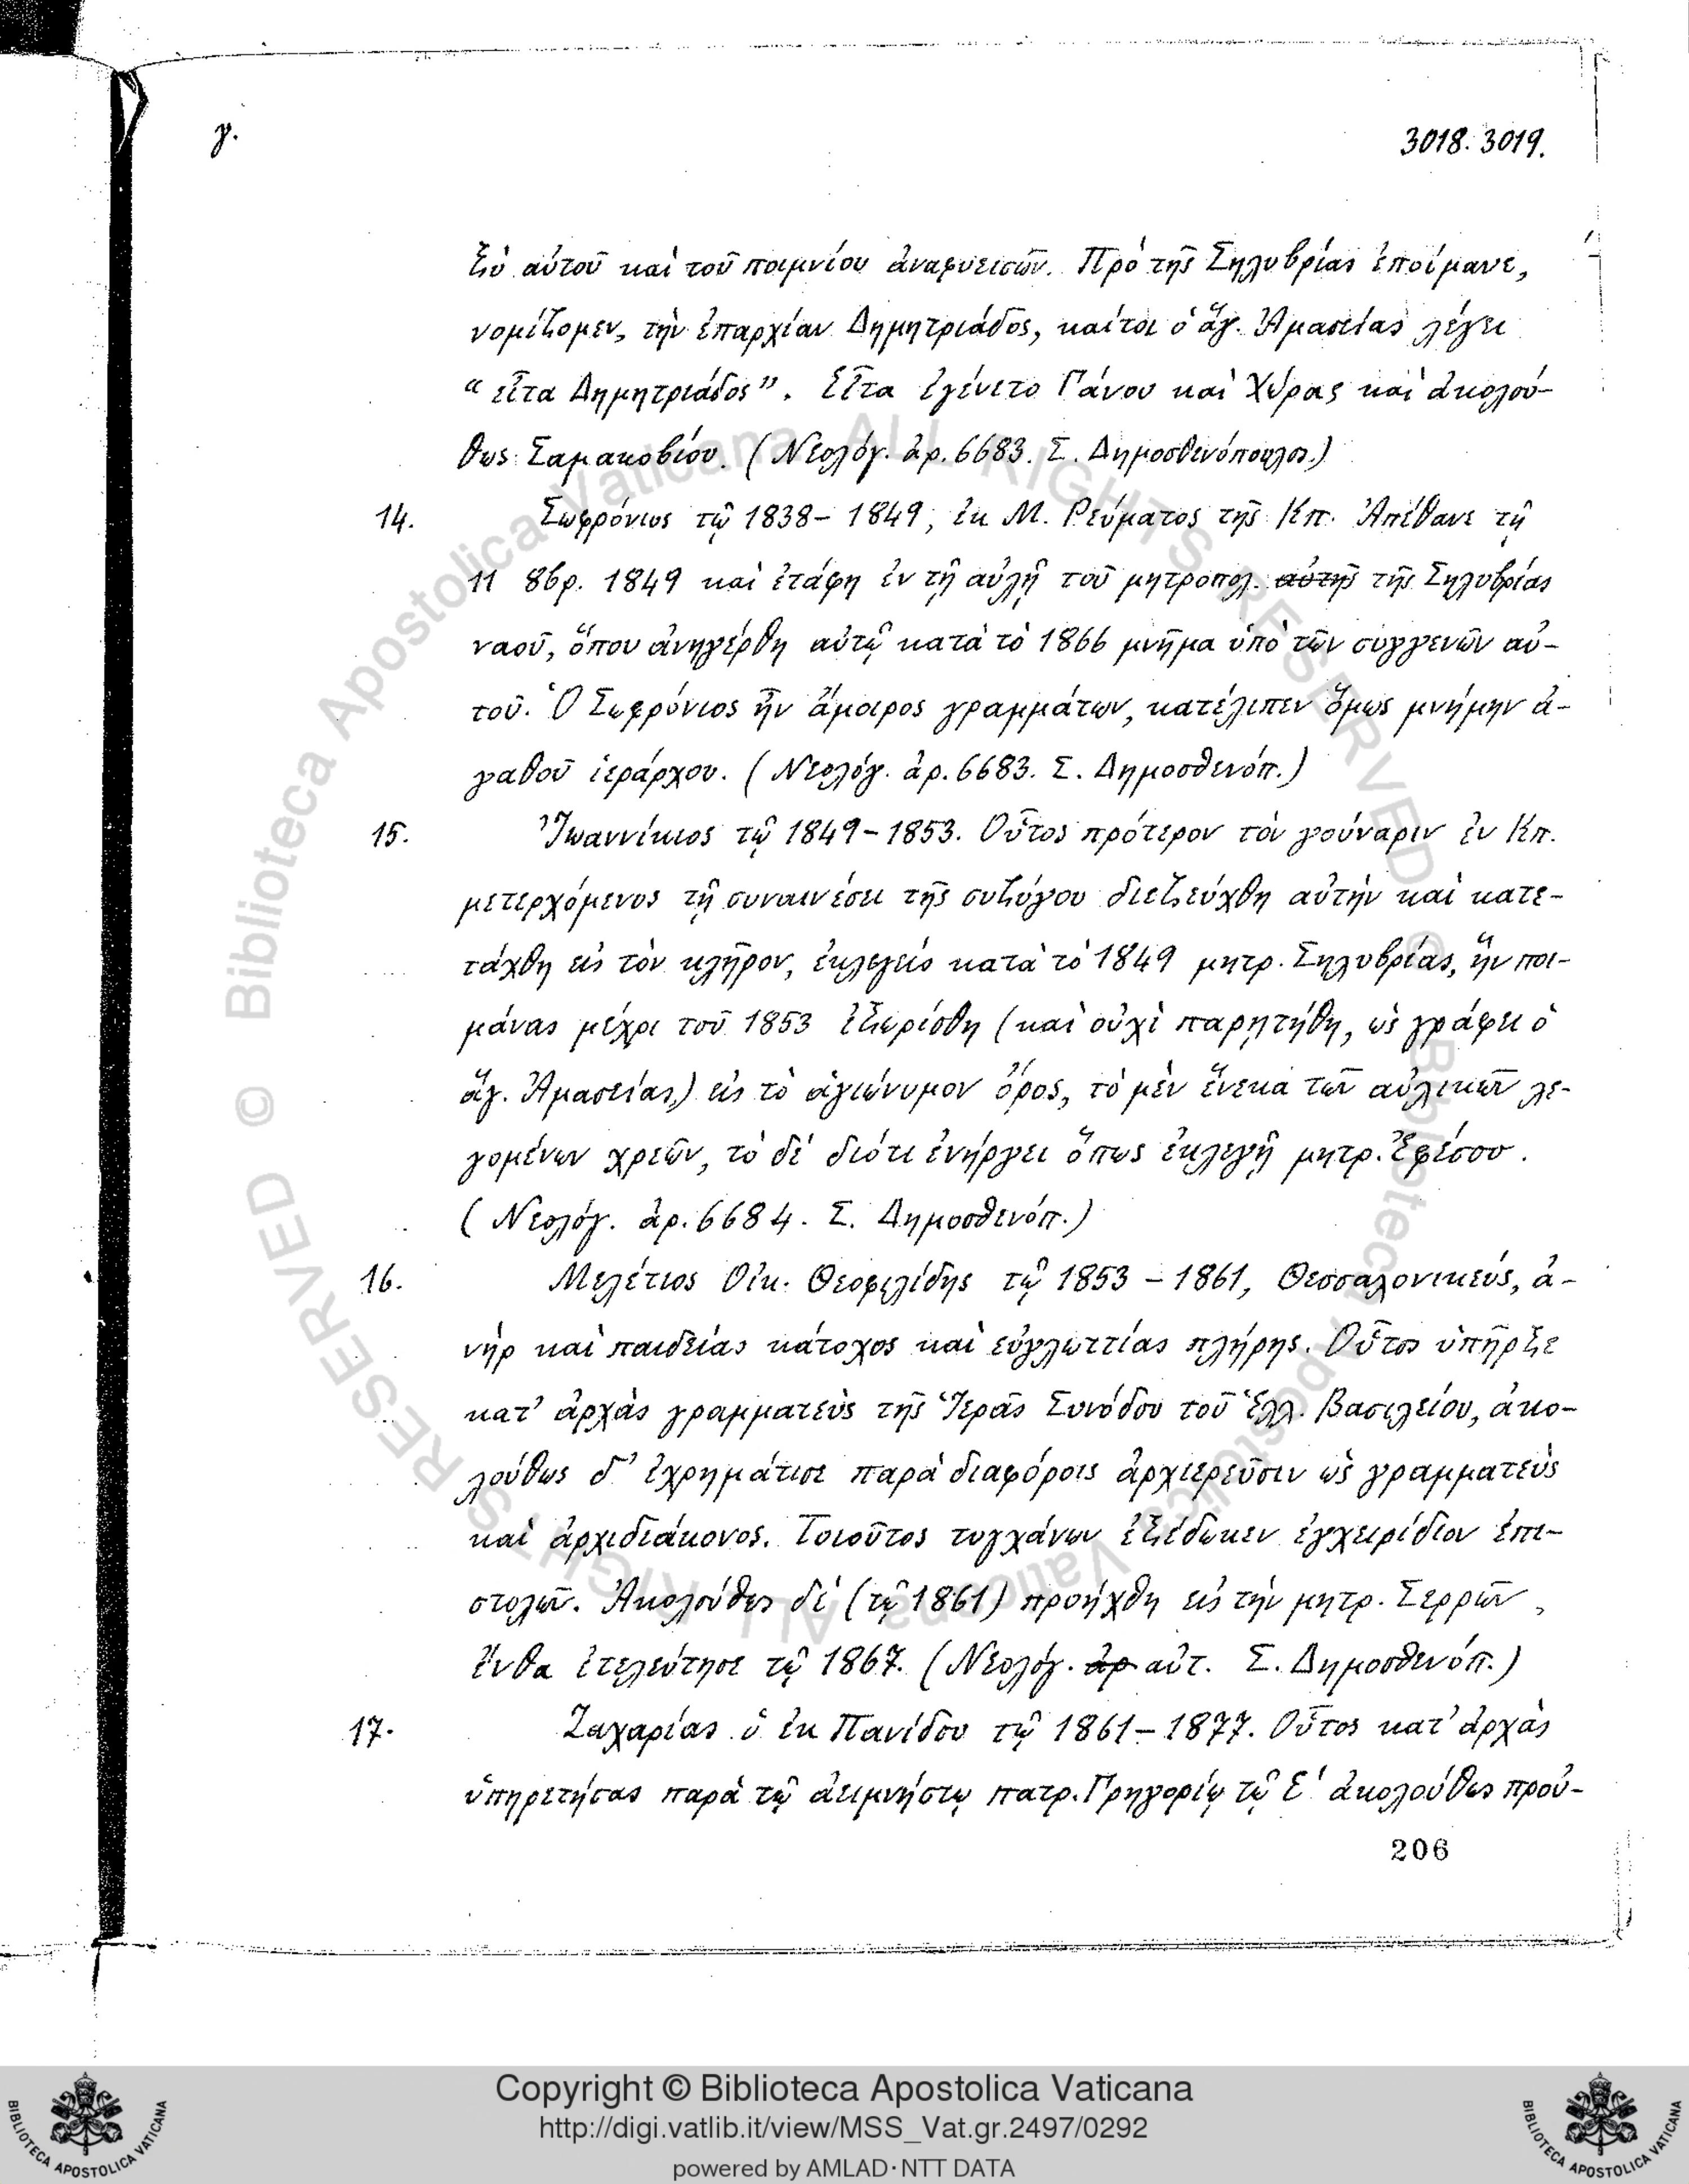 γ.
3018. 3019.
ξὺ αὐτοῦ καὶ τοῦ ποιμνίου ἀναφυεισῶν. Πρὸ τῆς Σηλυβρίας ἐποίμανε,
νομίζομεν, τὴν ἐπαρχίαν Δημητριάδος, καίτοι ὁ ἅγ. Ἀμασείας λέγει
“εἶτα Δημητριάδος”. Εἶτα ἐγένετο Γάνου καὶ Χώρας καὶ ἀκολού-
θως Σαμακοβίου. (Νεολόγ. ἀρ. 6683. Σ. Δημοσθενόπουλος.)
14. Σωφρόνιος τῷ 1838 – 1849, ἐκ Μ. Ρεύματος τῆς Κπ. Ἀπέθανε τῇ
11 8βρ. 1849 καὶ ἐτάφη ἐν τῇ αὐλῇ τοῦ μητροπολ. αὐτῆς τῆς Σηλυβρίας
ναοῦ, ὅπου ἀνηγέρθη αὐτῷ κατὰ τὸ 1866 μνῆμα ὑπὸ τῶν συγγενῶν αὐ-
τοῦ. Ὁ Σωφρόνιος ἦν ἄμοιρος γραμμάτων, κατέλιπεν ὅμως μνήμην ἀ-
γαθοῦ ἱεράρχου. (Νεολόγ. ἀρ. 6683. Σ. Δημοσθενόπ.)
15. Ἰωαννίκιος τῷ 1849 – 1853. Οὗτος πρότερον τὸν γούναριν ἐν Κπ.
μετερχόμενος τῇ συναινέσει τῆς συζύγου διεζεύχθη αὐτὴν καὶ κατε-
τάχθη εἰς τὸν κλῆρον, ἐκλεγεὶς κατὰ τὸ 1849 μητρ. Σηλυβρίας, ἣν ποι-
μάνας μέχρι τοῦ 1853 ἐξωρίσθη (καὶ οὐχὶ παρῃτήθη, ὡς γράφει ὁ
ἅγ. Ἀμασείας) εἰς τὸ ἁγιώνυμον ὄρος, τὸ μὲν ἕνεκα τῶν αὐλικῶν λε-
γομένων χρεῶν, τὸ δὲ διότι ἐνήργει ὅπως ἐκλεγῇ μητρ. Ἐφέσου.
(Νεολόγ. ἀρ. 6684. Σ. Δημοσθενόπ.)
16. Μελέτιος Οἰκ. Θεοφιλίδης τῷ 1853 – 1861, Θεσσαλονικεύς, ἀ-
νὴρ καὶ παιδείας κάτοχος καὶ εὐγλωττίας πλήρης. Οὗτος ὑπῆρξε
κατ’ ἀρχὰς γραμματεὺς τῆς Ἱερᾶς Συνόδου τοῦ Ἑλλ. Βασιλείου, ἀκο-
λούθως δ’ ἐχρημάτισε παρὰ διαφόροις ἀρχιερεῦσιν ὡς γραμματεὺς
καὶ ἀρχιδιάκονος. Τοιοῦτος τυγχάνων ἐξέδωκεν ἐγχειρίδιον ἐπι-
στολῶν. Ἀκολούθως δὲ (τῷ 1861) προήχθη εἰς τὴν μητρ. Σερρῶν,
ἔνθα ἐτελεύτησε τῷ 1867. (Νεολόγ. ἀρ αὐτ. Σ. Δημοσθενόπ.)
17. Ζαχαρίας ὁ ἐκ Πανίδου τῷ 1861 – 1877. Οὗτος κατ’ ἀρχὰς
ὑπηρετήσας παρὰ τῷ ἀειμνήστῳ πατρ. Γρηγορίῳ τῷ Ε΄ ἀκολούθως προὐ-
206
© Biblioteca Apostolica Vaticana ALL RIGHTS RESERVED
Copyright © Biblioteca Apostolica Vaticana
http://digi.vatlib.it/view/MSS_Vat.gr.2497/0292
powered by AMLAD·NTT DATA
BIBLIOTECA APOSTOLICA VATICANA
BIBLIOTECA APOSTOLICA VATICANA